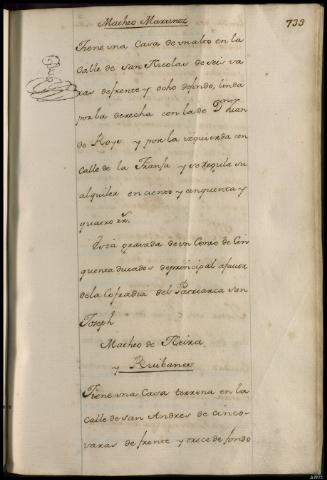 Matheo Martinez
733
Tiene una Casa de un alto en la
Calle de San Nicolas de seis va
ras de frente y ocho de fondo, linda
por la derecha con la de Dn Juan
de Roye y por la izquierda con
Calle de la Franja y se regula su
alquiler en ciento y cinquenta y
quatro rs.
Està gravada de un Censo de Cin
quenta ducados de principal a favor
de la Cofradia del Patriarca San
Joseph
Matheo de Neira
y
Tiene una Casa terrena en la
Calle de San Andres de cinco
varas de frente y trece de fondo